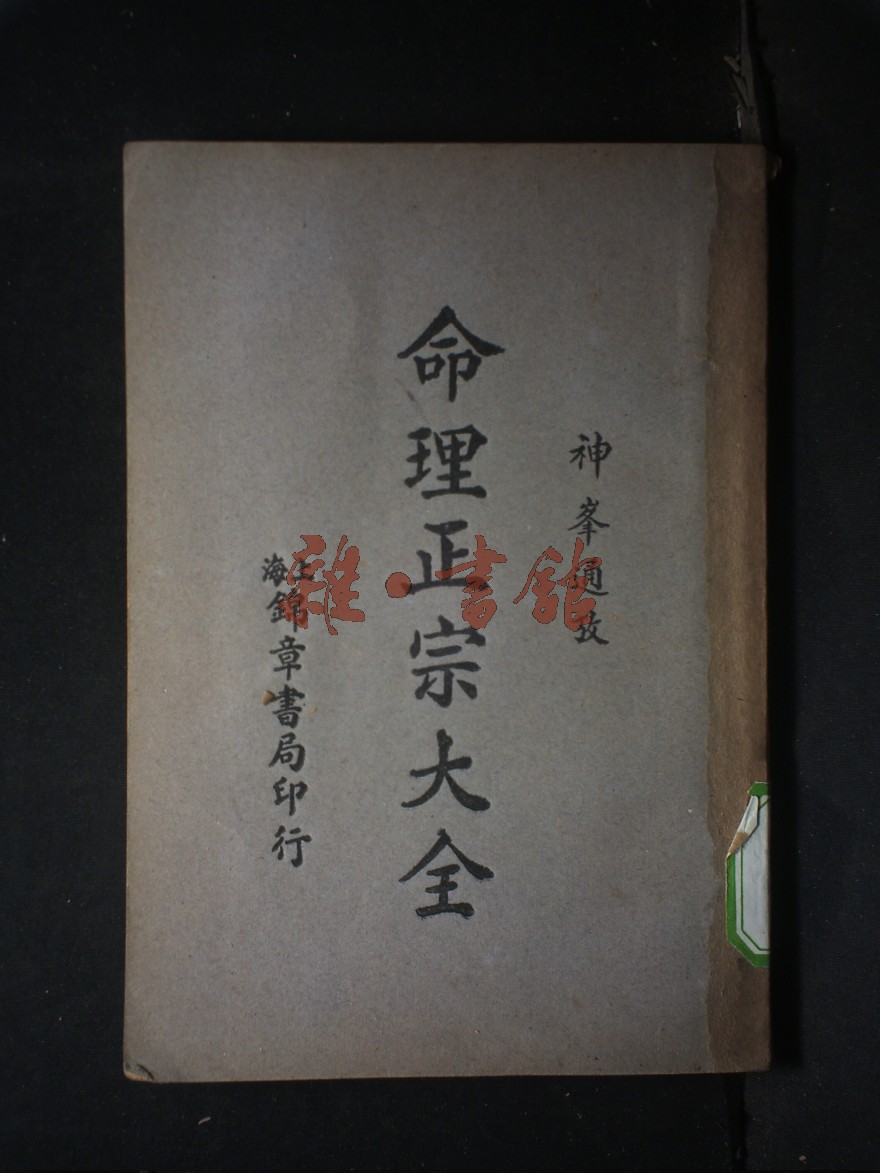 神峯通攷
命理正宗大全
上海錦章書局印行
雜·書館